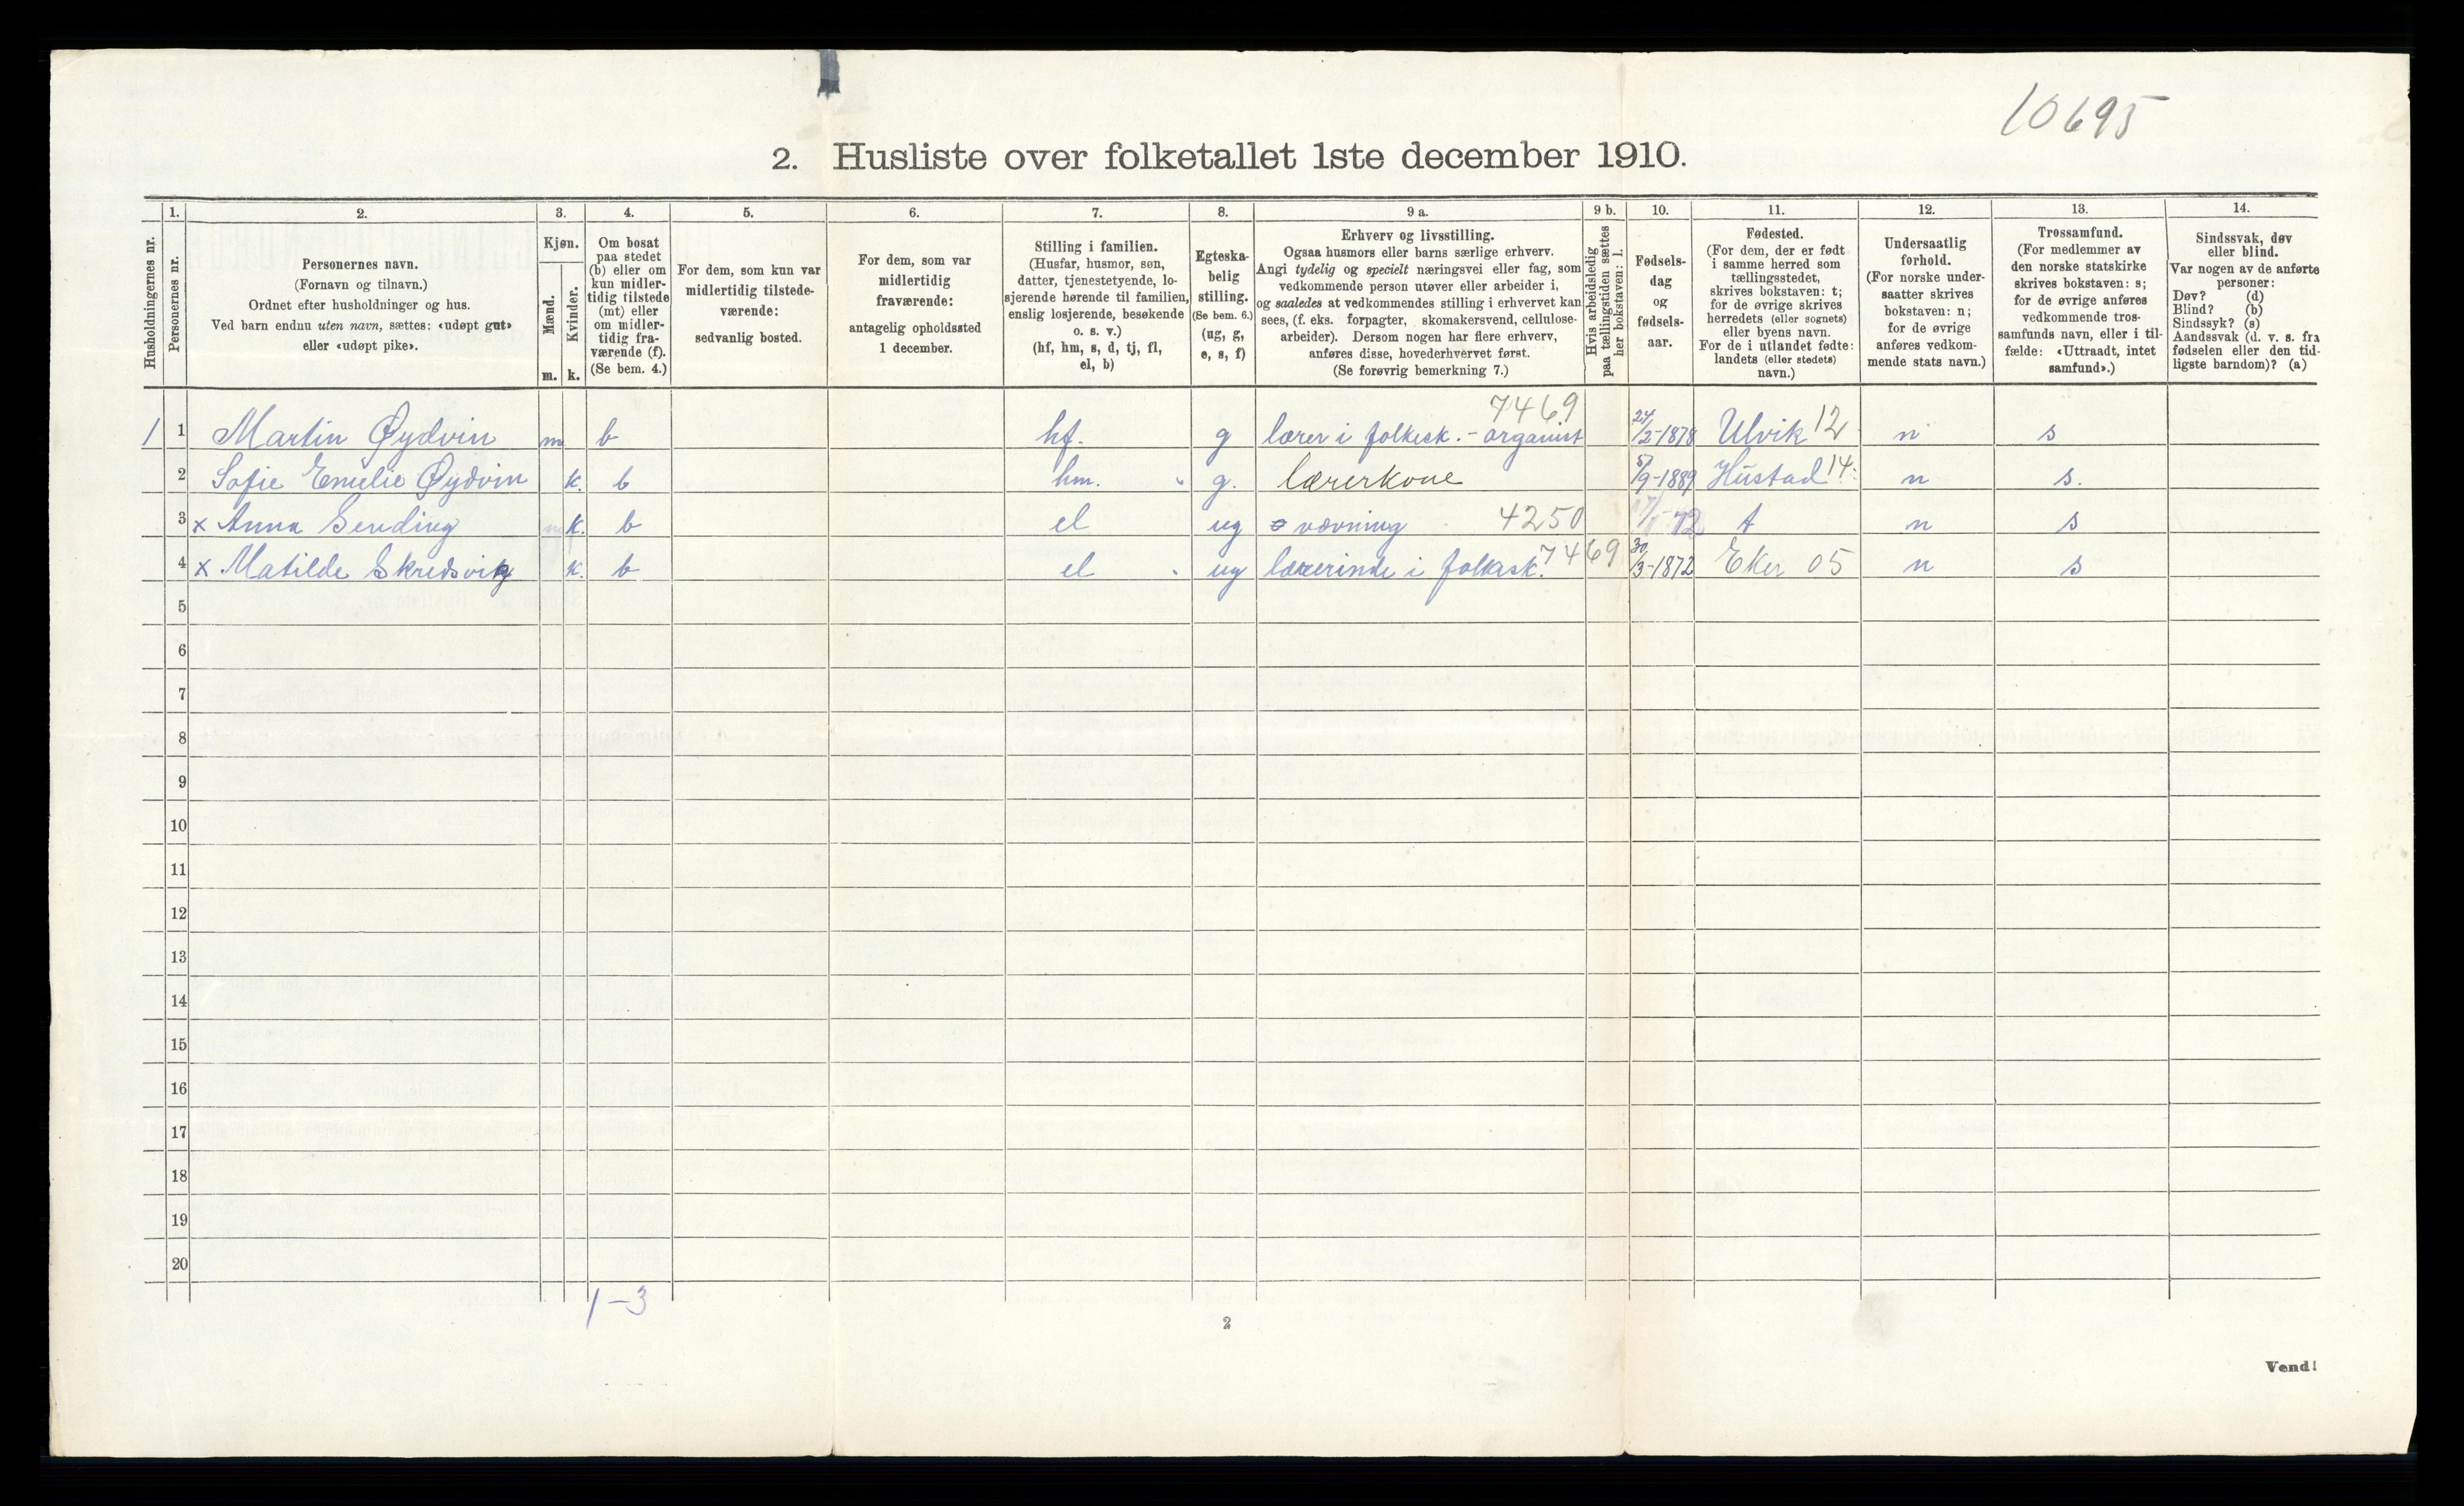 10695
2. Husliste over folketallet 1ste december 1910.
1. 2. 3. 4. 5. 6. 7. 8. 9 a. 9 b. 10. 11. 12. 13. 14.
Husholdningernes nr.
Personernes nr.
Personernes navn.
(Fornavn og tilnavn.)
Ordnet efter husholdninger og hus.
Ved barn endnu uten navn, sættes: «udøpt gut»
eller «udøpt pike».
Kjøn.
Mænd.
Kvinder.
m. k.
Om bosat
paa stedet
(b) eller om
kun midler-
tidig tilstede
(mt) eller
om midler-
tidig fra-
værende (f).
(Se bem. 4.)
For dem, som kun var
midlertidig tilstede-
værende:
sedvanlig bosted.
For dem, som var
midlertidig
fraværende:
antagelig opholdssted
1 december.
Stilling i familien.
(Husfar, husmor, søn,
datter, tjenestetyende, lo-
sjerende hørende til familien,
enslig losjerende, besøkende
o. s. v.)
(hf, hm, s, d, tj, fl,
el, b)
Egteska-
belig
stilling.
(Se bem. 6.)
(ug, g,
e, s, f)
Erhverv og livsstilling.
Ogsaa husmors eller barns særlige erhverv.
Angi tydelig og specielt næringsvei eller fag, som
vedkommende person utøver eller arbeider i,
og saaledes at vedkommendes stilling i erhvervet kan
sees, (f. eks. forpagter, skomakersvend, cellulose-
arbeider). Dersom nogen har flere erhverv,
anføres disse, hovederhvervet først.
(Se forøvrig bemerkning 7.)
Hvis arbeidsledig
paa tællingstiden sættes
her bokstaven: l.
Fødsels-
dag
og
fødsels-
aar.
Fødested.
(For dem, der er født
i samme herred som
tællingsstedet,
skrives bokstaven: t;
for de øvrige skrives
herredets (eller sognets)
eller byens navn.
For de i utlandet fødte:
landets (eller stedets)
navn.)
Undersaatlig
forhold.
(For norske under-
saatter skrives
bokstaven: n;
for de øvrige
anføres vedkom-
mende stats navn.)
Trossamfund.
(For medlemmer av
den norske statskirke
skrives bokstaven: s;
for de øvrige anføres
vedkommende tros-
samfunds navn, eller i til-
fælde: «Uttraadt, intet
samfund».)
Sindssvak, døv
eller blind.
Var nogen av de anførte
personer:
Døv? (d)
Blind? (b)
Sindssyk? (s)
Aandssvak (d. v. s. fra
fødselen eller den tid-
ligste barndom)? (a)
7469
1 1 Martin Øydvin m b hf. g lærer i folkesk. - organist 24/2-1878 Ulvik 12 n s
2 Sofie Emelie Øydvin k. b hm. g. lærerkone 5/9-1889 Hustad 14 n s.
3 x Anna Sending k. b el ug vævning 4250 72 t n s
4 x Matilde Skredsvig k. b el ug lærerinde i folkesk. 7469 30/3-1872 Eker 05 n s
5
6
7
8
9
10
11
12
13
14
15
16
17
18
19
20
1-3
2
Vend!